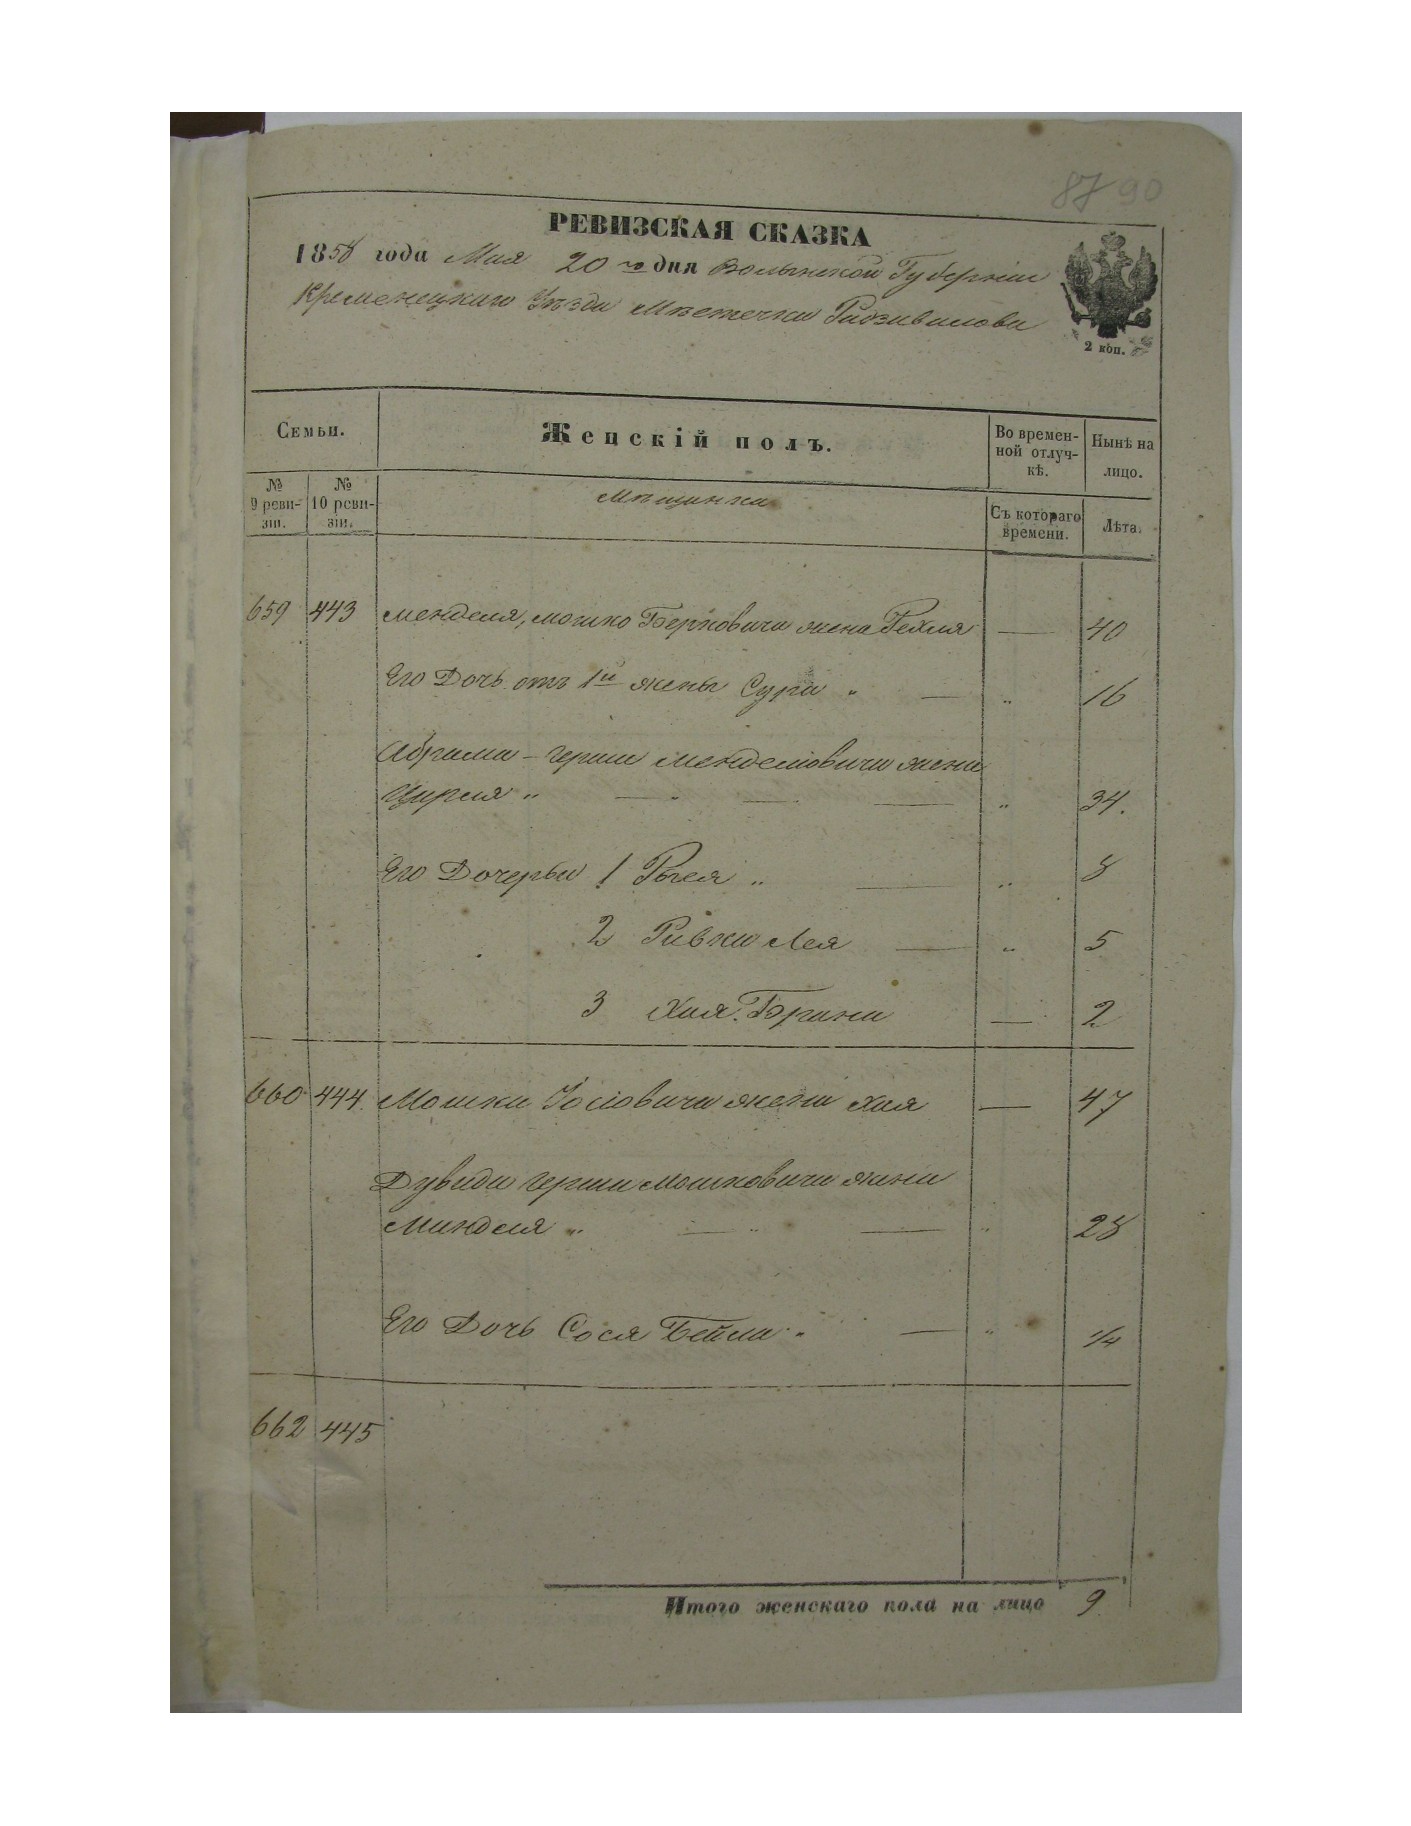 87 90
РЕВИЗСКАЯ СКАЗКА
1858 года Мая 20 го дня Волынской Губерніи
Кременецкаго Уѣзда Мѣстечка Радзивилова
2 коп.
Семьи.
Женскій полъ.
Во времен-
ной отлуч-
кѣ.
Нынѣ на
лицо.
№
9 реви-
зіи.
№
10 реви-
зіи.
Мѣщанка
Съ котораго
времени.
Лѣта.
659 443 Менделя, Мошко Берковича жена Рехля — 40
Его Дочь отъ 1й жены Сура " — " 16
Абрама-Герша Менделіовича жена
Цирля " — " — — " 34.
Его Дочерьи 1 Рыся " — " 8
2 Ривка Лея — " 5
3 Хая Брана — 2
660 444 Мошка Іосіовича жена Хая — 47
Дувида Герша Мошковича жена
Минделя " — " — " 28
Его Дочь Сося Бейла " — " 1/4
662 445
Итого женскаго пола на лицо 9